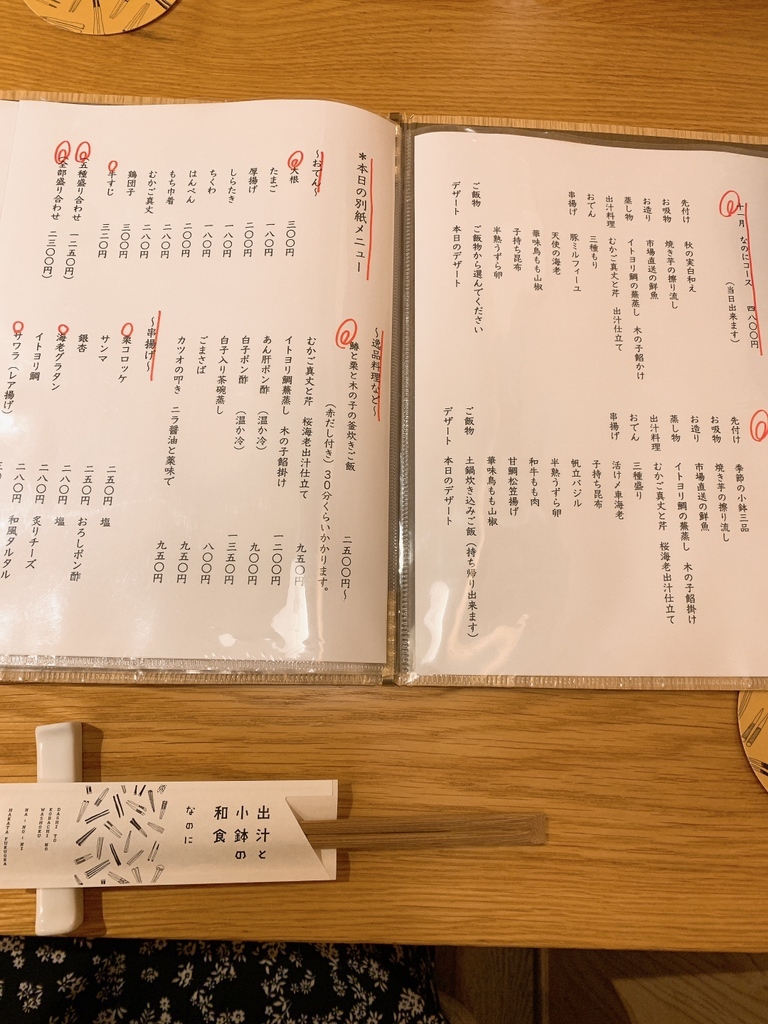 十一月 なのにコース 四八〇〇円
(当日出来ます)
先付け 秋の実白和え
お吸物 焼き芋の擦り流し
お造り 市場直送の鮮魚
蒸し物 イトヨリ鯛の蕪蒸し 木の子餡かけ
出汁料理 むかご真丈と芹 出汁仕立て
おでん 三種もり
串揚げ 豚ミルフィーユ
天使の海老
華味鳥もも山椒
子持ち昆布
半熟うずら卵
ご飯物 ご飯物から選んでください
デザート 本日のデザート
先付け 季節の小鉢三品
お吸物 焼き芋の擦り流し
お造り 市場直送の鮮魚
蒸し物 イトヨリ鯛の蕪蒸し 木の子餡掛け
出汁料理 むかご真丈と芹 桜海老出汁仕立て
おでん 三種盛り
串揚げ 活け〆車海老
子持ち昆布
帆立バジル
半熟うずら卵
和牛もも肉
甘鯛松笠揚げ
華味鳥もも山椒
ご飯物 土鍋炊き込みご飯(持ち帰り出来ます)
デザート 本日のデザート
*本日の別紙メニュー
〜おでん〜
大根 三〇〇円
たまご 一八〇円
厚揚げ 二〇〇円
しらたき 一八〇円
ちくわ 一八〇円
はんぺん 二〇〇円
もち巾着 二八〇円
むかご真丈 二八〇円
鶏団子 二八〇円
牛すじ 三二〇円
五種盛り合わせ 一二五〇円)
全部盛り合わせ 二三〇〇円)
〜逸品料理など〜
鰆と栗と木の子の釜炊きご飯 二五〇〇円〜
(赤だし付き)30分くらいかかります。
むかご真丈と芹 桜海老出汁仕立て 九五〇円
イトヨリ鯛蕪蒸し 木の子餡掛け 一二〇〇円
あん肝ポン酢 (温か冷) 九〇〇円
白子ポン酢 (温か冷) 一三五〇円
白子入り茶碗蒸し 八〇〇円
ごまさば 九五〇円
カツオの叩き ニラ醤油と薬味で 九五〇円
〜串揚げ〜
栗コロッケ 二五〇円 塩
サンマ 二五〇円 おろしポン酢
銀杏 二八〇円 塩
海老グラタン 二八〇円 炙りチーズ
イトヨリ鯛 二八〇円 和風タルタル
サワラ(レア揚げ)
出汁と
小鉢の
和食
なのに
DASHI TO
KOBACHI NO
WASHOKU
NA・NO・NI
HAKATA FUKUOKA